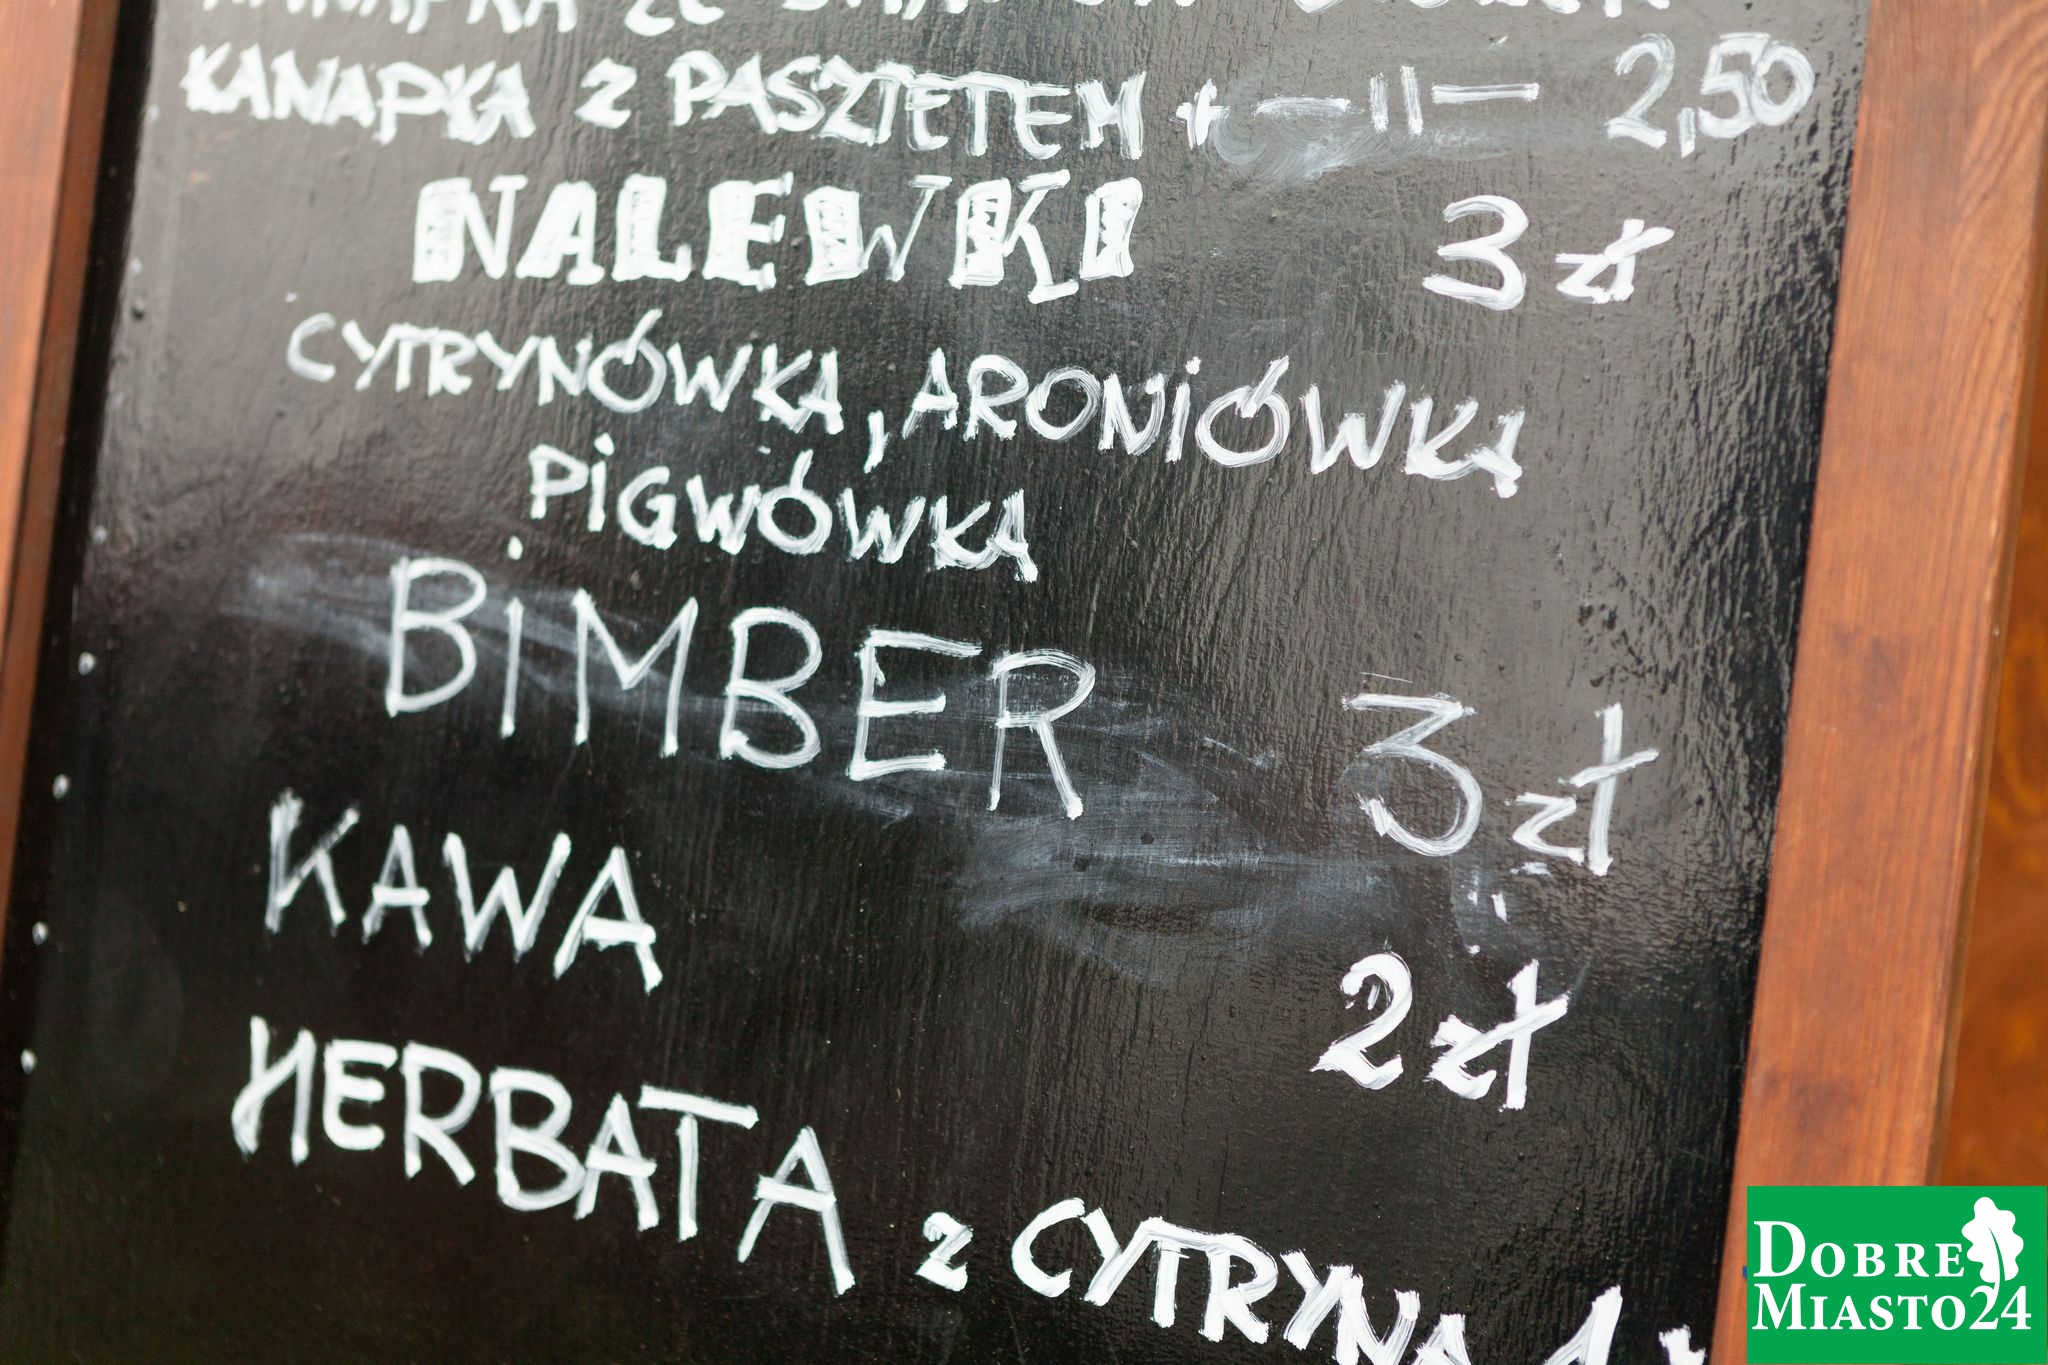 KANAPKA ZE
KANAPKA Z PASZTETEM + — || — 2,50
NALEWKI 3 zł
CYTRYNÓWKA, ARONIÓWKA
PIGWÓWKA
BIMBER 3 zł
KAWA 2 zł
HERBATA z CYTRYNĄ 1
DOBRE
MIASTO24